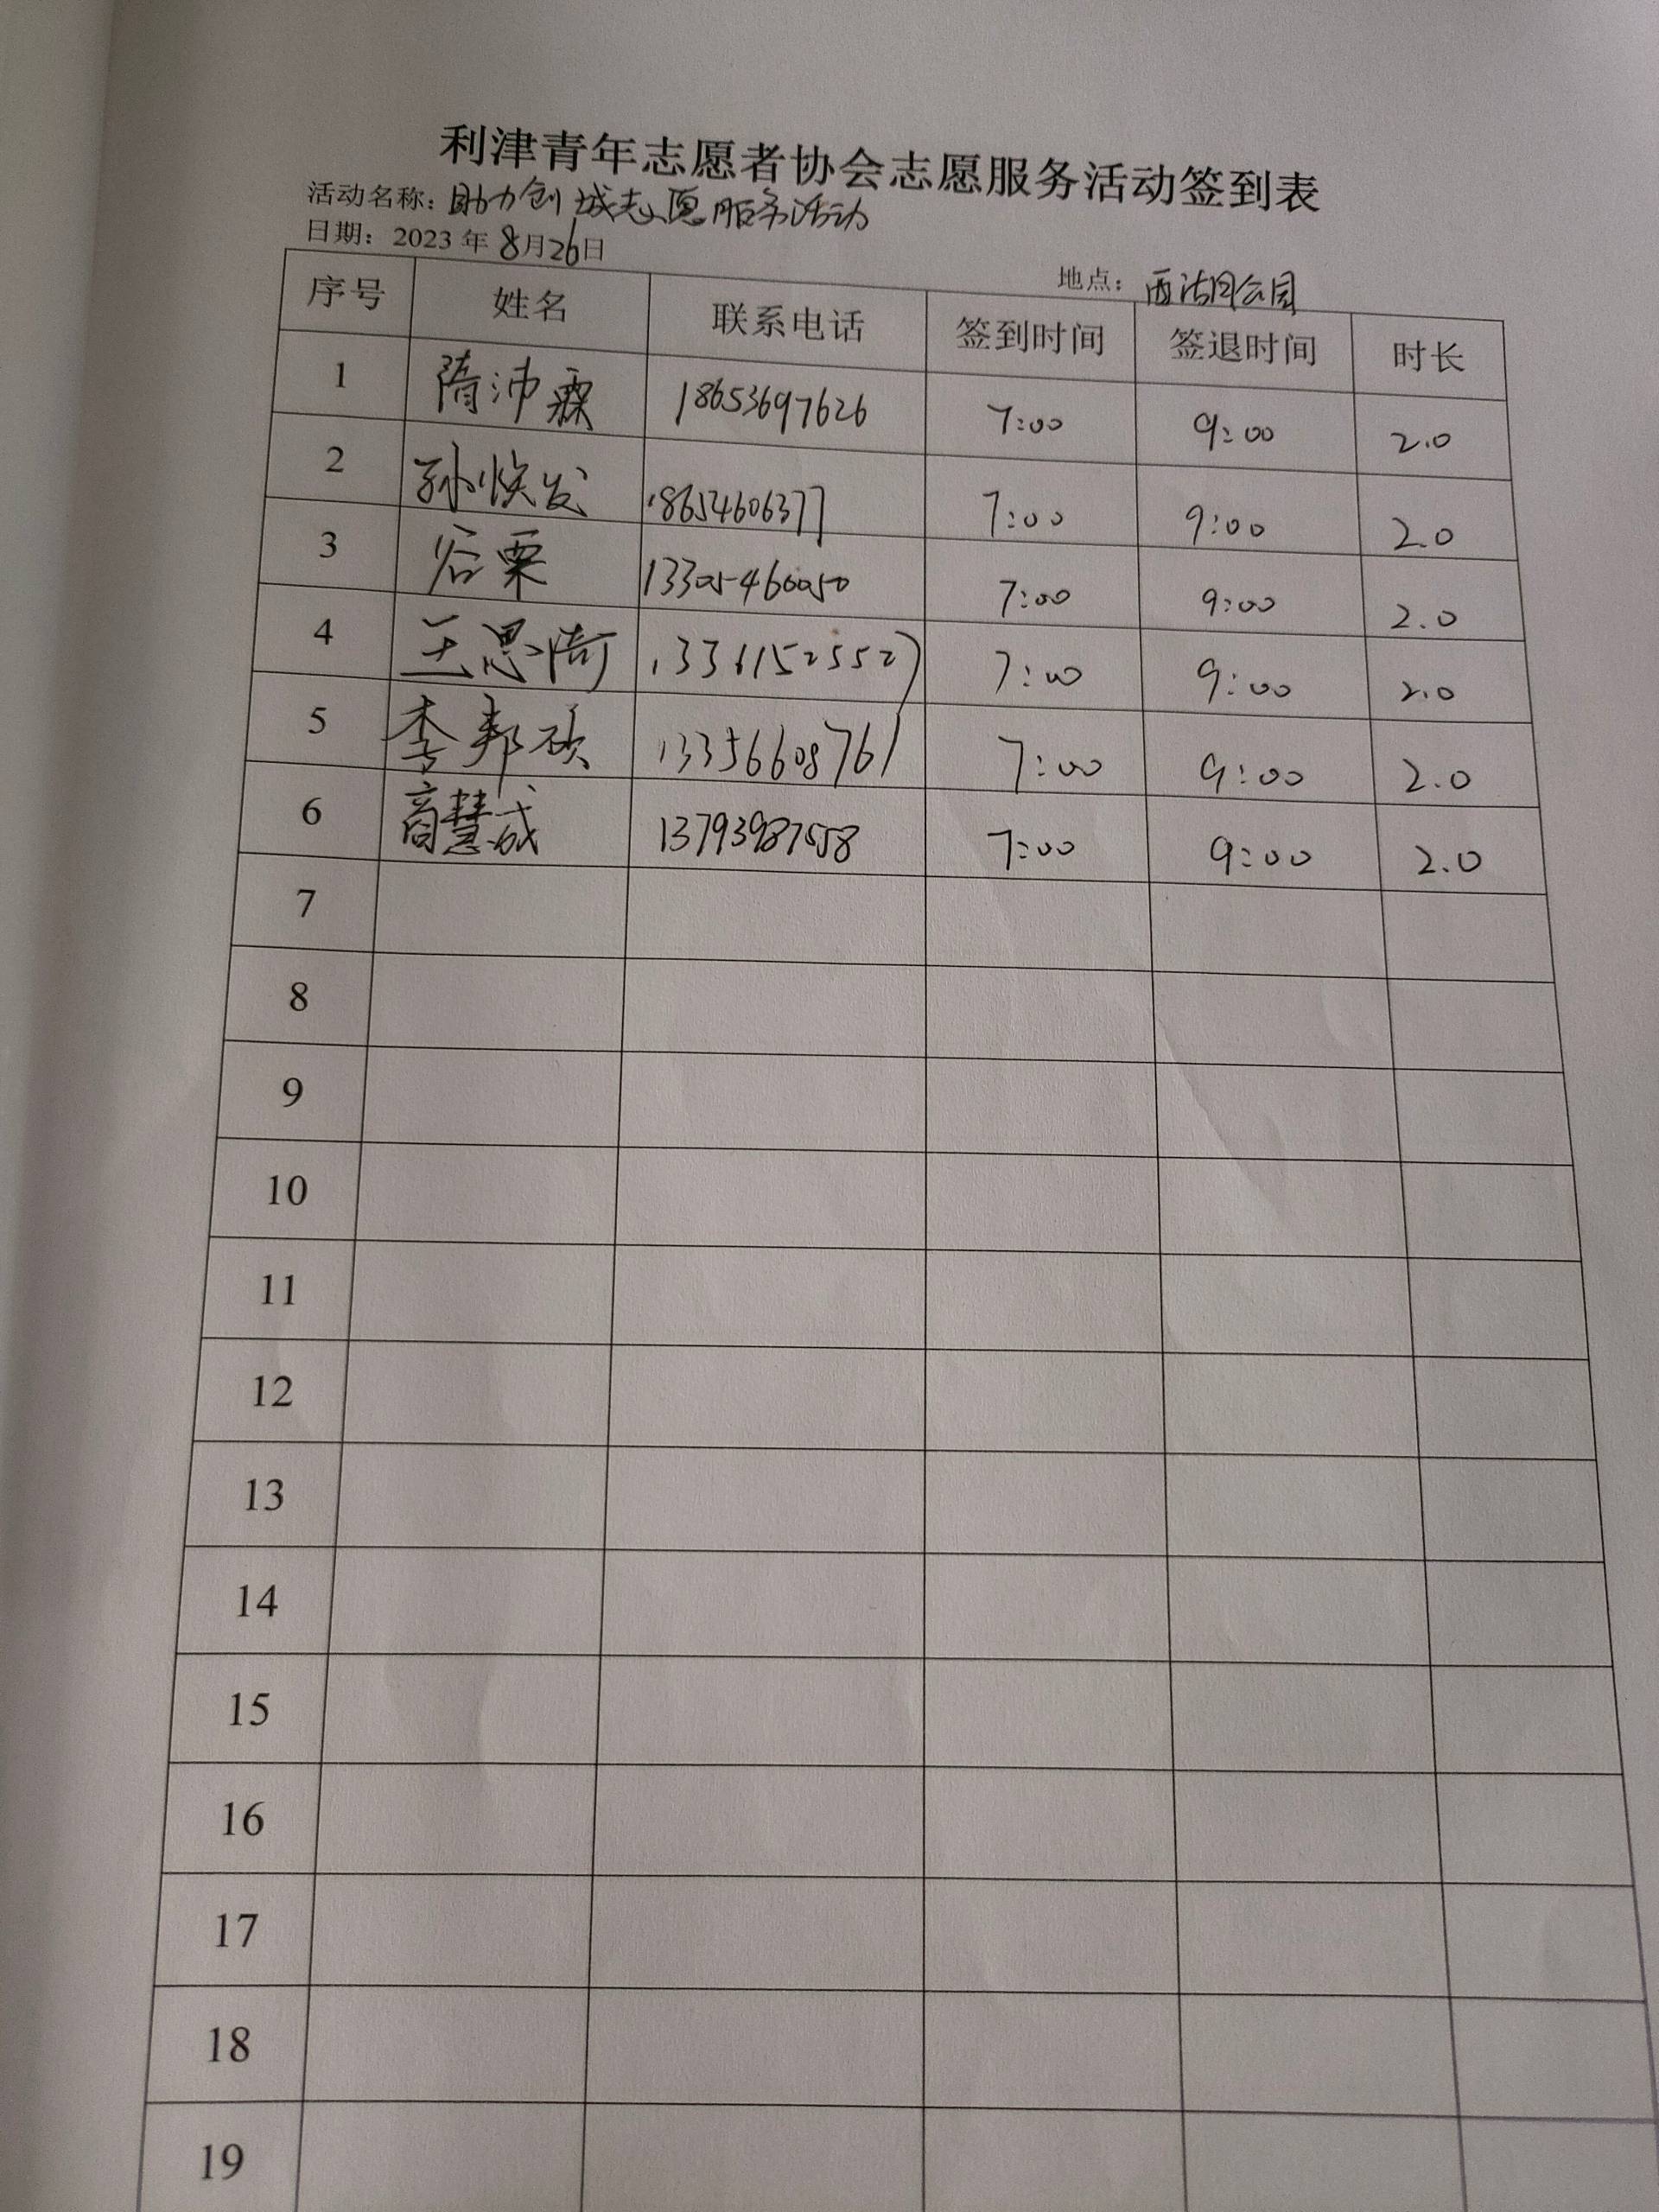 利津青年志愿者协会志愿服务活动签到表
活动名称：助力创城志愿服务活动
日期：2023年8月26日
地点：西湖公园
序号 姓名 联系电话 签到时间 签退时间 时长
1 隋沛霖 18653697626 7:00 9:00 2.0
2 孙焕发 18654606377 7:00 9:00 2.0
3 谷栗 13305460050 7:00 9:00 2.0
4 王思倚 13361525527 7:00 9:00 2.0
5 李邦硕 13356608761 7:00 9:00 2.0
6 商慧成 13793987558 7:00 9:00 2.0
7
8
9
10
11
12
13
14
15
16
17
18
19